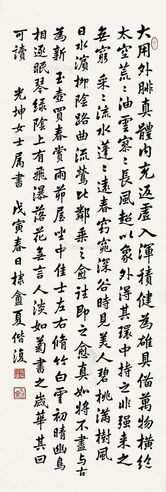 大用外腓真體內充返虛入渾積健為雄具備萬物橫絕
太空荒〻油雲寥〻長風超以象外得其環中持之非強來之
無窮 采〻流水蓬〻遠春窈窕深谷時見美人碧桃滿樹風
日水濱柳陰路曲流鶯比鄰乘之愈往即之愈真如將不盡與古
為新 玉壺買春賞雨茆屋坐中佳士左右脩竹白雲初晴幽鳥
相逐眠琴綠陰上有飛瀑落花無言人淡如菊書之歲華其曰
可讀 光坤女士屬書 戊寅春日棣盦夏偕復